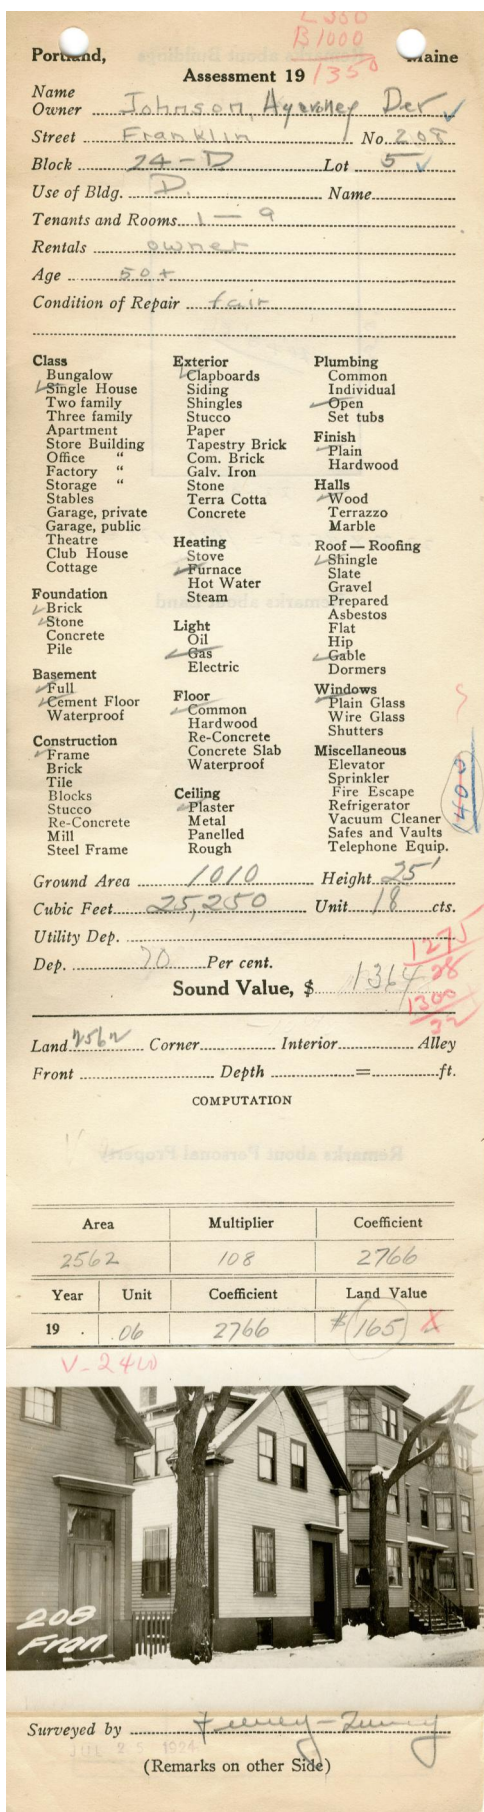 L 350
B 1000
1350
Portland, Maine
Assessment 19
Name
Owner Johnson, Dev
Street Franklin No. 208
Block 24-D Lot 5
Use of Bldg. D. Name
Tenants and Rooms 1 — 9
Rentals owner
Age 50+
Condition of Repair fair
Class
Bungalow
Single House
Two family
Three family
Apartment
Store Building
Office "
Factory "
Storage "
Stables
Garage, private
Garage, public
Theatre
Club House
Cottage
Foundation
Brick
Stone
Concrete
Pile
Basement
Full
Cement Floor
Waterproof
Construction
Frame
Brick
Tile
Blocks
Stucco
Re-Concrete
Mill
Steel Frame
Exterior
Clapboards
Siding
Shingles
Stucco
Paper
Tapestry Brick
Com. Brick
Galv. Iron
Stone
Terra Cotta
Concrete
Heating
Stove
Furnace
Hot Water
Steam
Light
Oil
Gas
Electric
Floor
Common
Hardwood
Re-Concrete
Concrete Slab
Waterproof
Ceiling
Plaster
Metal
Panelled
Rough
Plumbing
Common
Individual
Open
Set tubs
Finish
Plain
Hardwood
Halls
Wood
Terrazzo
Marble
Roof — Roofing
Shingle
Slate
Gravel
Prepared
Asbestos
Flat
Hip
Gable
Dormers
Windows
Plain Glass
Wire Glass
Shutters
Miscellaneous
Elevator
Sprinkler
Fire Escape
Refrigerator
Vacuum Cleaner
Safes and Vaults
Telephone Equip.
1400
Ground Area 1010 Height 25'
Cubic Feet 25,250 Unit 18 cts.
Utility Dep.
Dep. 70 Per cent.
1275
28
Sound Value, $ 1364
1300
32
Land 2562 Corner Interior Alley
Front Depth = ft.
COMPUTATION
Area Multiplier Coefficient
2562 108 2766
Year Unit Coefficient Land Value
19 .06 2766 $165 X
V-2400
208
Fran
Surveyed by
JUL 25 1924
(Remarks on other Side)